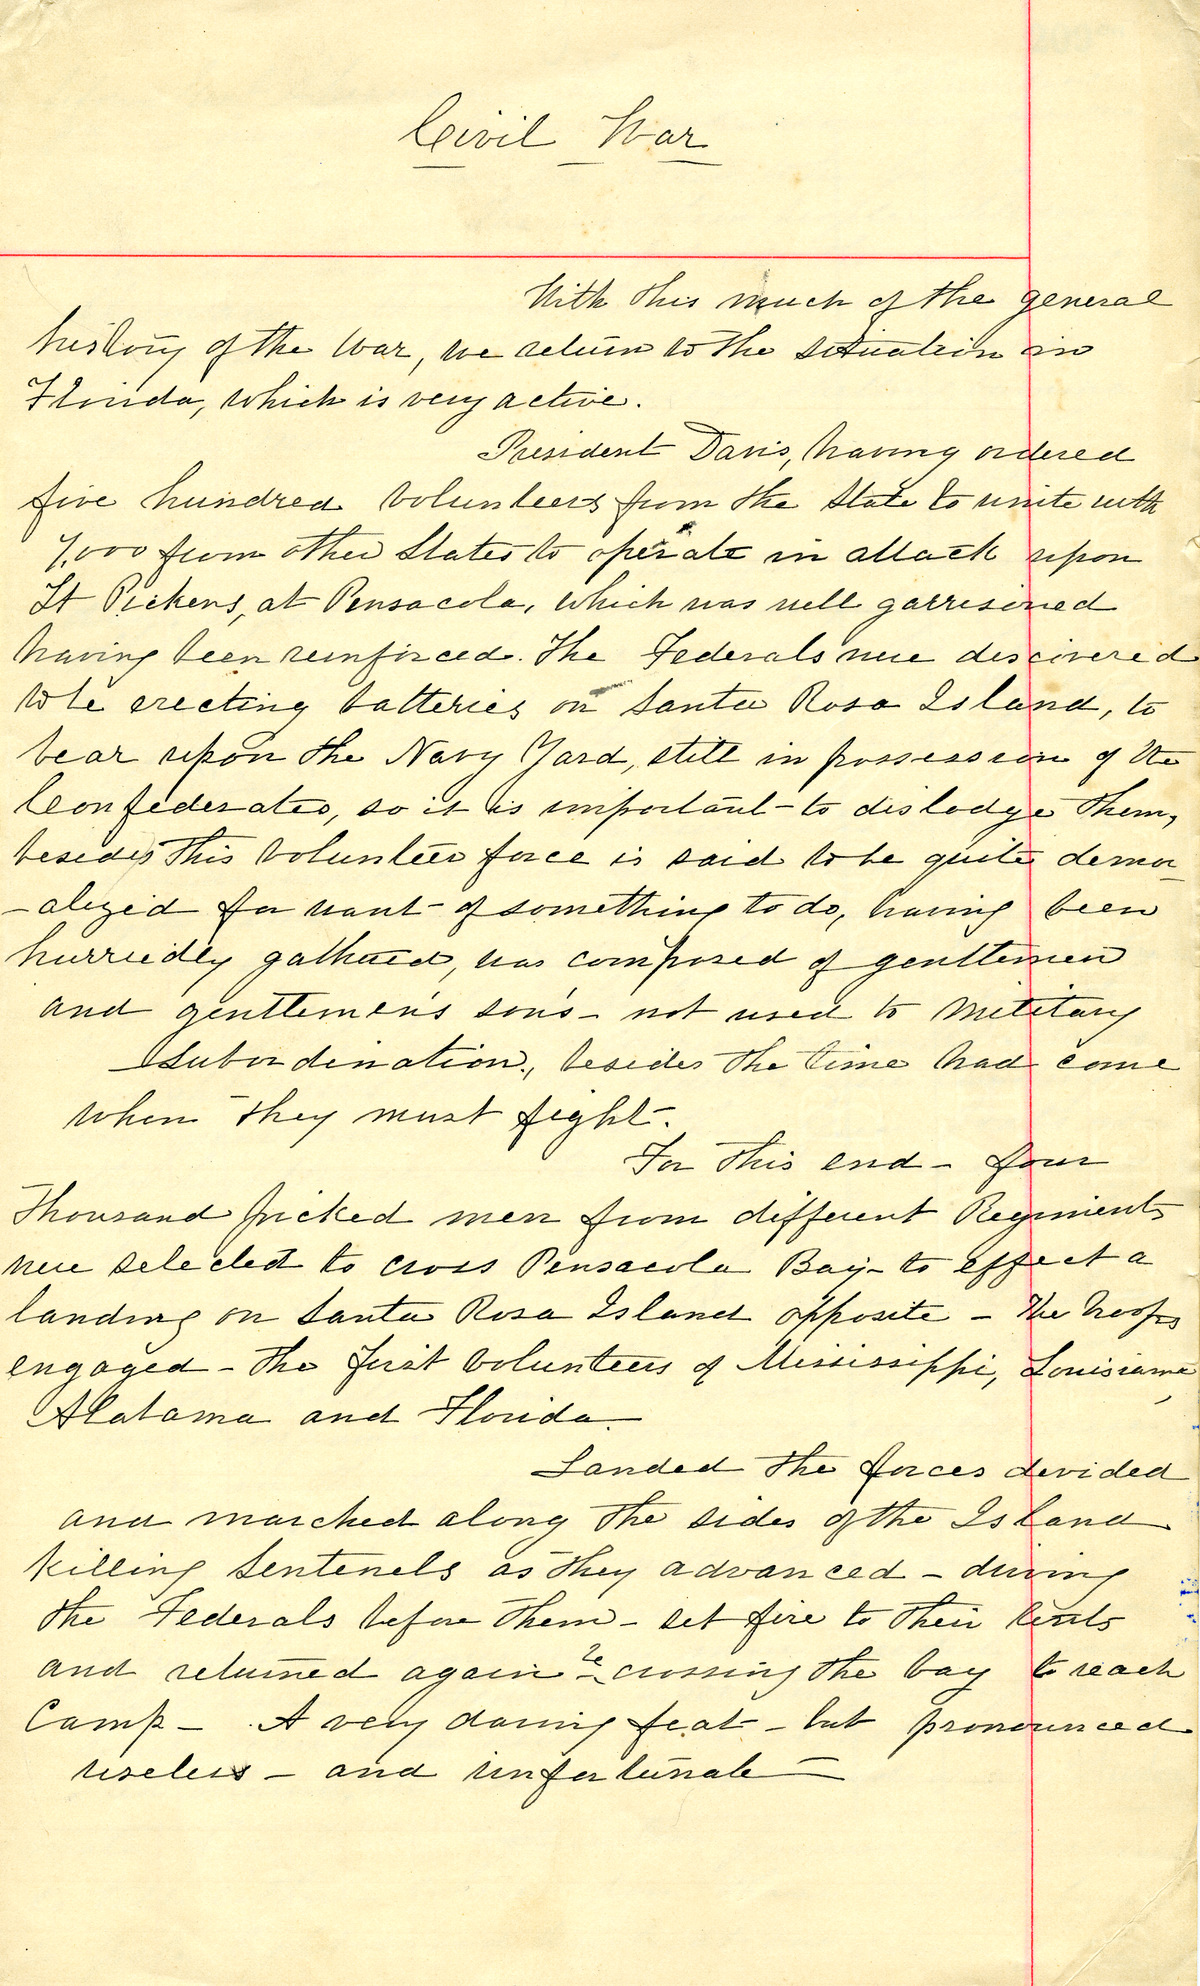 Civil War
With this much of the general
history of the War, we return to the situation in
Florida, which is very active.
President Davis, having ordered
five hundred Volunteers from the State to unite with
7,000 from other States to operate in attack upon
Ft Pickens, at Pensacola, which was well garrisoned
having been reinforced. The Federals were discovered
to be erecting batteries on Santa Rosa Island, to
bear upon the Navy Yard, still in possession of the
Confederates, so it is important - to dislodge them,
besides this Volunteer force is said to be quite demor
-alized for want - of something to do, having been
hurriedly gathered, was composed of gentlemen
and gentlemen's sons - not used to Military
Subordination, besides the time had come
when they must fight -.
For this end - four
Thousand picked men from different Regiments
were selected to cross Pensacola Bay - to effect a
landing on Santa Rosa Island opposite - The troops
engaged - the first Volunteers of Mississippi, Louisiana,
Alabama and Florida.
Landed the forces divided
and marched along the sides of the Island
killing Sentenels as they advanced - driving
the Federals before them - set fire to their tents
and returned again - crossing the bay to reach
Camp - A very daring feat - but pronounced
useless - and unfortunate -